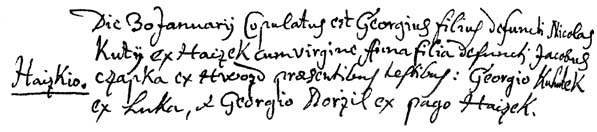 Die 30 Januarij Copulatus est Georgius filius defuncti Nicolai
Kutij ex Haizek cum virgine Anna filia defuncti Jacobus
Haizkio. czapka ex Hwozd præsentibus testibus: Georgio
ex Luka, & Georgio Borzil ex pago Haizek.